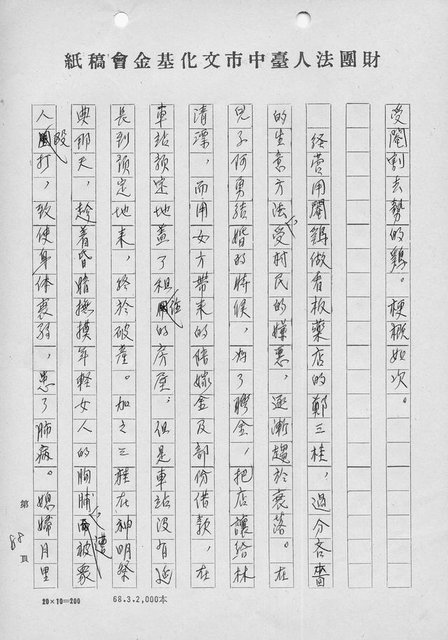 財團法人臺中市文化基金會稿紙
受閹割去勢的鷄。梗概如次。
經營用閹鷄做看板藥店的鄭三桂,過分吝嗇
的生意方法,受村民的嫌惡,逐漸趨於衰落。在
兒子何勇結婚的時候,為了聘金,把店讓給林
清漂,而用女方帶來的陪嫁金及部份借款,在
車站預定地蓋了租的房屋;但是車站沒有延
長到預定地來,終於破產。加之三桂在神明祭
典那天,趁着昏暗撫摸年輕女人的胸脯,遭被眾
人毆打,致使身體衰弱,患了肺病。媳婦月里
第 88 頁
20×10=200 68.3.2,000本